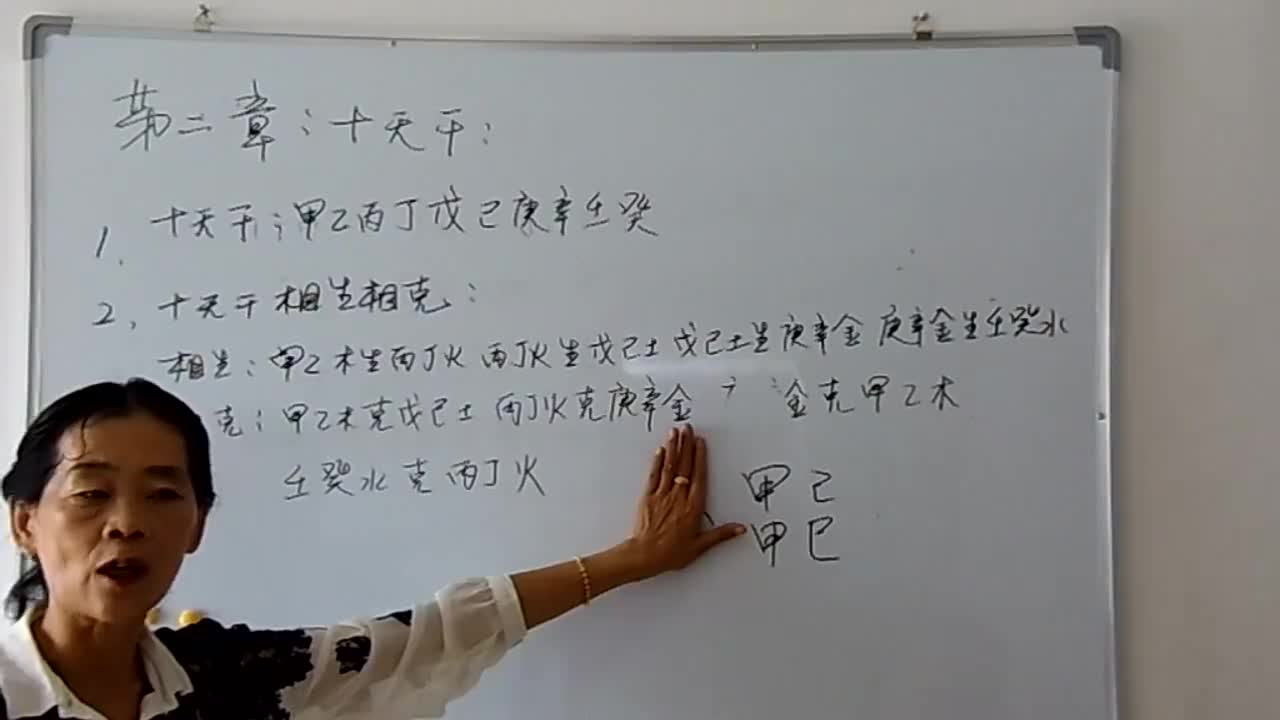 第二章:十天干:
1. 十天干:甲乙丙丁戊己庚辛壬癸
2、十天干相生相克:
相生:甲乙木生丙丁火 丙丁火生戊己土 戊己土生庚辛金 庚辛金生壬癸水
克:甲乙木克戊己土 丙丁火克庚辛金 金克甲乙木
壬癸水克丙丁火
甲己
甲巳